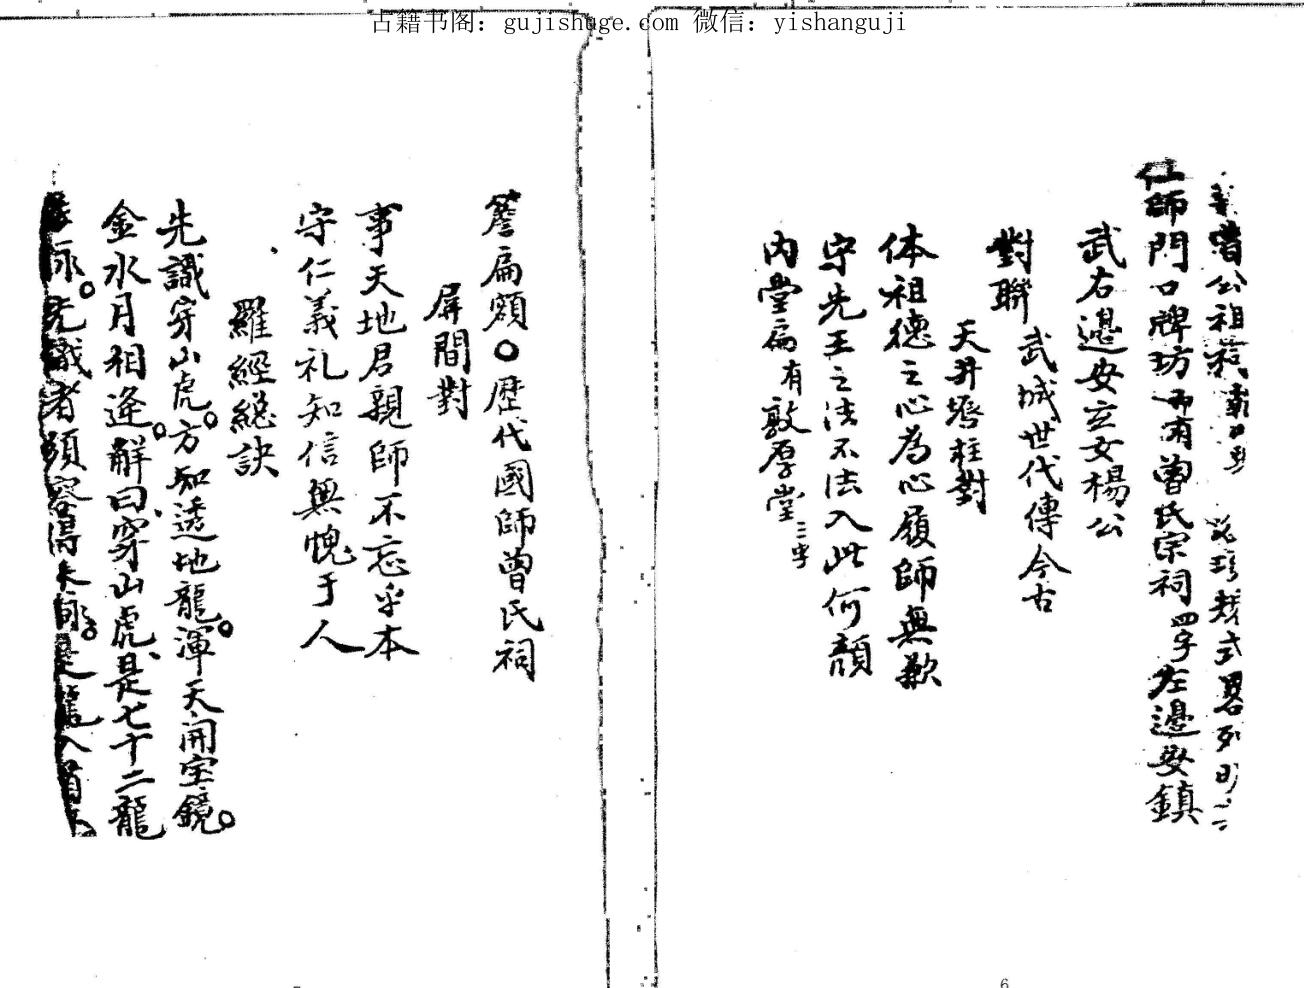 古籍书阁：gujishuge.com 微信：yishanguji
曾公祖 式畧列
師門口牌坊 曾氏宗祠四字左邉安鎮
武右邉安立女楊公
對聨
武城世代傳今古
天井塝柱對
体祖德之心為心履師無歉
守先王之法不法入此何顔
内堂扁有敦厚堂三字
簷扁額○歴代國師曾氏祠
屏間對
事天地君親師不忘乎本
守仁義礼知信無愧于人
羅經総訣
先識穿山虎。方知透地龍。渾天開宝鏡。
金水月相逢。解曰、穿山虎、是七十二龍
脉。先識者須容得來脉。是 入首
6